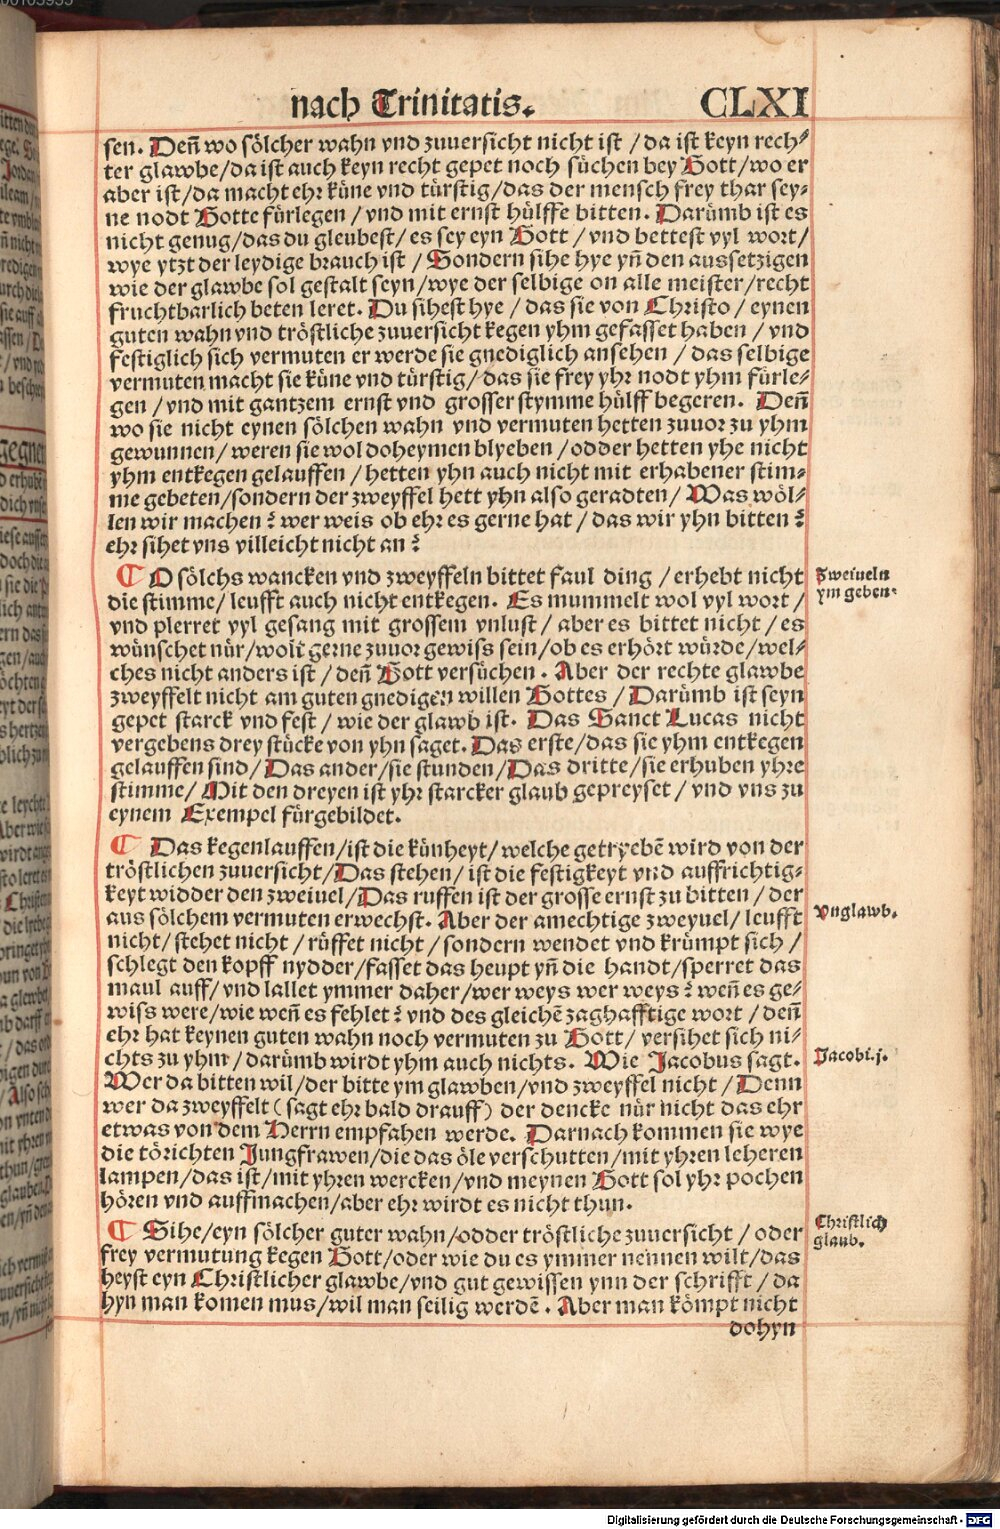 nach Trinitatis.
CLXI
sen. Deñ wo sölcher wahn vnd zuuersicht nicht ist / da ist keyn rech⸗
ter glawbe/da ist auch keyn recht gepet noch süchen bey Gott/wo er
aber ist/da macht ehr küne vnd türstig/das der mensch frey thar sey⸗
ne nodt Gotte fürlegen / vnd mit ernst hülffe bitten. Darümb ist es
nicht genug/das du gleubest/ es sey eyn Gott / vnd bettest vyl wort/
wye ytzt der leydige brauch ist / Sondern sihe hye yñ den aussetzigen
wie der glawbe sol gestalt seyn/wye der selbige on alle meister/recht
fruchtbarlich beten leret. Du sihest hye / das sie von Christo / eynen
guten wahn vnd tröstliche zuuersicht kegen yhm gefasset haben / vnd
festiglich sich vermuten er werde sie gnediglich ansehen / das selbige
vermuten macht sie küne vnd türstig/das sie frey yhr nodt yhm fürle⸗
gen / vnd mit gantzem ernst vnd grosser stymme hülff begeren. Deñ
wo sie nicht eynen sölchen wahn vnd vermuten hetten zuuor zu yhm
gewunnen/ weren sie wol doheymen blyeben /odder hetten yhe nicht
yhm entkegen gelauffen / hetten yhn auch nicht mit erhabener stim⸗
me gebeten/sondern der zweyffel hett yhn also geradten/ Was wöl⸗
len wir machen? wer weis ob ehr es gerne hat / das wir yhn bitten?
ehr sihet vns villeicht nicht an?
¶ O sölchs wancken vnd zweyffeln bittet faul ding / erhebt nicht
die stimme/ leufft auch nicht entkegen. Es mummelt wol vyl wort /
vnd plerret vyl gesang mit grossem vnlust / aber es bittet nicht / es
wünschet nür/wolt gerne zuuor gewiss sein/ob es erhört würde/wel⸗
ches nicht anders ist / deñ Gott versüchen. Aber der rechte glawbe
zweyffelt nicht am guten gnedigen willen Gottes / Darümb ist seyn
gepet starck vnd fest / wie der glawb ist. Das Sanct Lucas nicht
vergebens drey stücke von yhn saget. Das erste/das sie yhm entkegen
gelauffen sind/Das ander/sie stunden/Das dritte/sie erhuben yhre
stimme/ Mit den dreyen ist yhr starcker glaub gepreyset / vnd vns zu
eynem Exempel fürgebildet.
Zweiueln
ym geben⸗
¶ Das kegenlauffen/ist die künheyt/ welche getryebē wird von der
tröstlichen zuuersicht/Das stehen/ ist die festigkeyt vnd auffrichtig⸗
keyt widder den zweiuel/Das ruffen ist der grosse ernst zu bitten / der
aus sölchem vermuten erwechst. Aber der amechtige zweyuel/ leufft
nicht/stehet nicht / rüffet nicht / sondern wendet vnd krümpt sich /
schlegt den kopff nydder/fasset das heupt yñ die handt/sperret das
maul auff/vnd lallet ymmer daher/wer weys wer weys? weñ es ge⸗
wiss were/wie weñ es fehlet? vnd des gleichē zaghafftige wort / deñ
ehr hat keynen guten wahn noch vermuten zu Gott/ versihet sich ni⸗
chts zu yhm/darümb wirdt yhm auch nichts. Wie Jacobus sagt.
Wer da bitten wil/der bitte ym glawben/vnd zweyffel nicht / Denn
wer da zweyffelt (sagt ehr bald drauff) der dencke nür nicht das ehr
etwas von dem Herrn empfahen werde. Darnach kommen sie wye
die törichten Jungfrawen/die das öle verschutten/mit yhren leheren
lampen/das ist/mit yhren wercken/vnd meynen Gott sol yhr pochen
hören vnd auffmachen/aber ehr wirdt es nicht thun.
Vnglawb.
Jacobi.j.
¶ Sihe/eyn sölcher guter wahn/odder tröstliche zuuersicht / oder
frey vermutung kegen Gott/oder wie du es ymmer nennen wilt/das
heyst eyn Christlicher glawbe/vnd gut gewissen ynn der schrifft / da
hyn man komen mus/wil man seilig werdē. Aber man kömpt nicht
Christlich
glaub.
dohyn
Digitalisierung gefördert durch die Deutsche Forschungsgemeinschaft - DFG